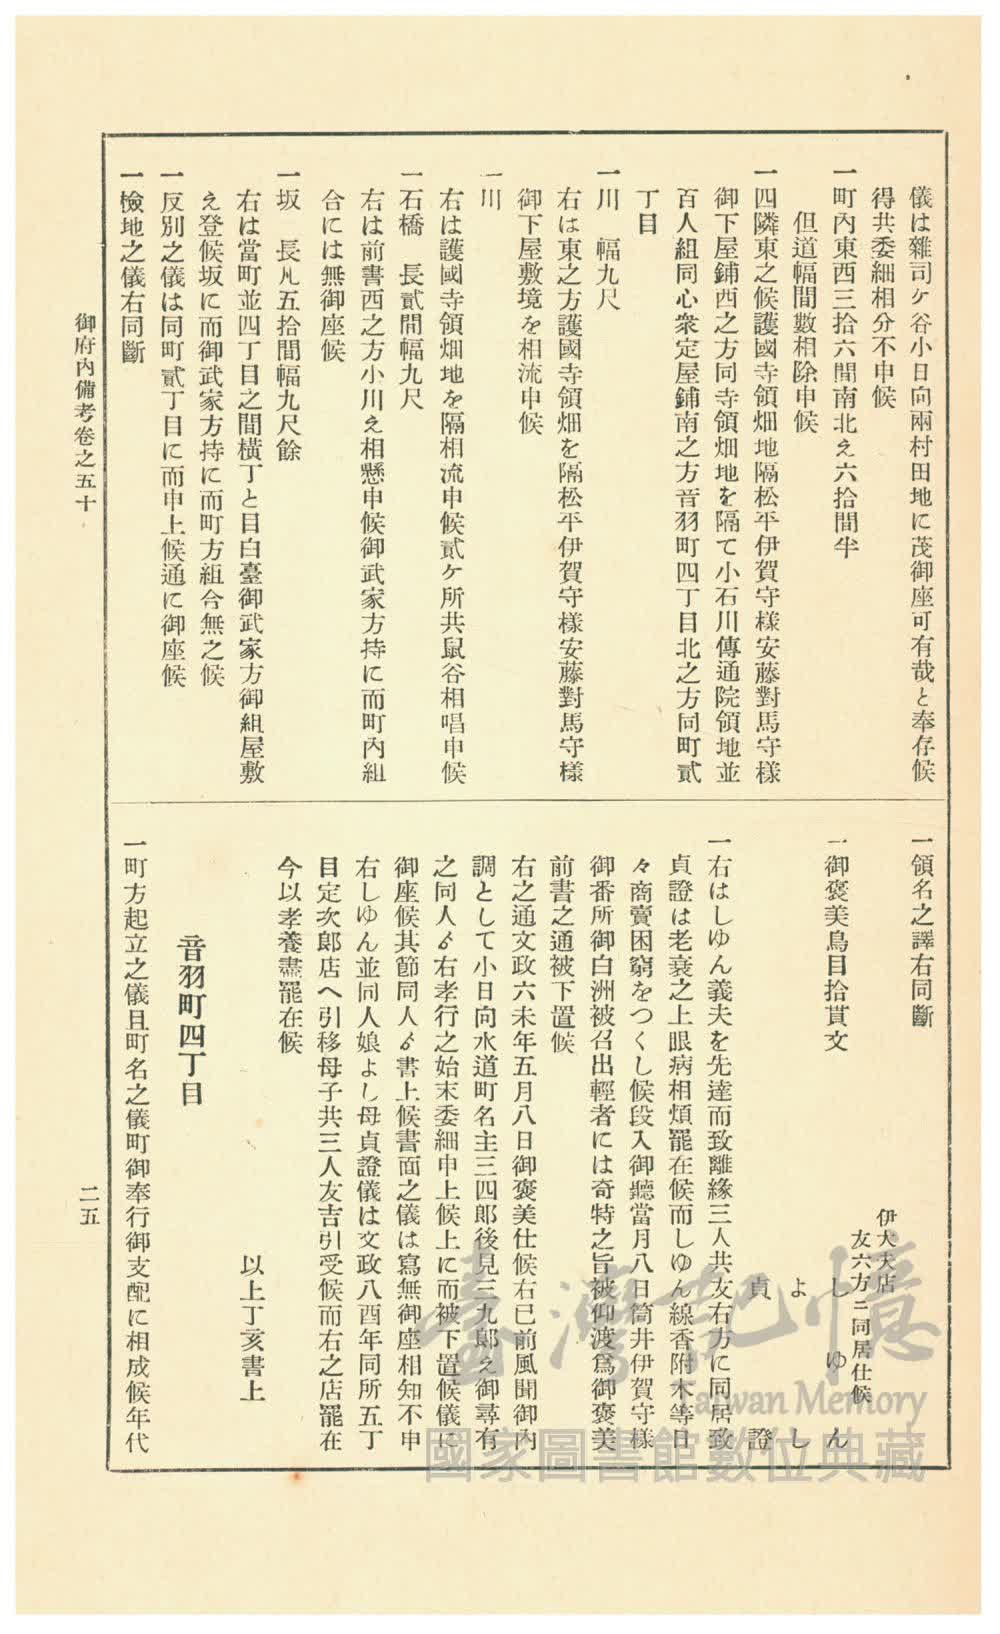 儀は雜司ケ谷小日向兩村田地に茂御座可有哉と奉存候
得共委細相分不申候
一町內東西三拾六間南北え六拾間半
但道幅間數相除申候
一四隣東之候護國寺領畑地隔松平伊賀守樣安藤對馬守樣
御下屋鋪西之方同寺領畑地を隔て小石川傳通院領地並
百人組同心衆定屋鋪南之方音羽町四丁目北之方同町貳
丁目
一川　幅九尺
右は東之方護國寺領畑を隔松平伊賀守樣安藤對馬守樣
御下屋敷境を相流申候
一川
右は護國寺領畑地を隔相流申候貳ケ所共鼠谷相唱申候
一石橋　長貳間幅九尺
右は前書西之方小川え相懸申候御武家方持に而町內組
合には無御座候
一坂　長凡五拾間幅九尺餘
右は當町並四丁目之間橫丁と目白臺御武家方御組屋敷
え登候坂に而御武家方持に而町方組合無之候
一反別之儀は同町貳丁目に而申上候通に御座候
一檢地之儀右同斷
一領名之譯右同斷
一御褒美鳥目拾貫文
伊大夫店
友六方ニ同居仕候
しゆん
よし
貞證
一右はしゆん義夫を先達而致離緣三人共友右方に同居致
貞證は老衰之上眼病相煩罷在候而しゆん線香附木等日
々商賣困窮をつくし候段入御聽當月八日筒井伊賀守樣
御番所御白洲被召出輕者には奇特之旨被仰渡爲御褒美
前書之通被下置候
右之通文政六未年五月八日御褒美仕候右已前風聞御內
調として小日向水道町名主三四郎後見三九郎え御尋有
之同人ゟ右孝行之始末委細申上候上に而被下置候儀に
御座候其節同人ゟ書上候書面之儀は寫無御座相知不申
右しゆん並同人娘よし母貞證儀は文政八酉年同所五丁
目定次郎店へ引移母子共三人友吉引受候而右之店罷在
今以孝養盡罷在候
以上丁亥書上
音羽町四丁目
一町方起立之儀且町名之儀町御奉行御支配に相成候年代
御府內備考卷之五十
二五
臺灣記憶
Taiwan Memory
國家圖書館數位典藏